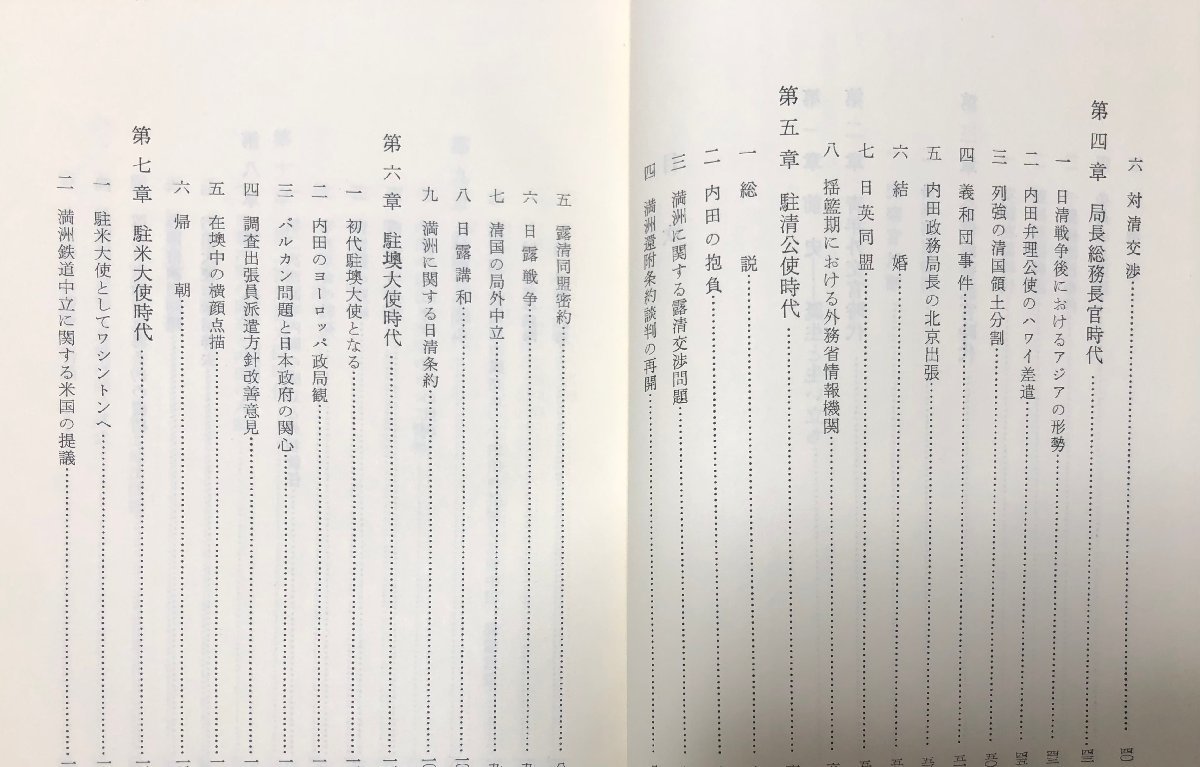 六 対清交渉
第四章 局長総務長官時代
一 日清戦争後におけるアジアの形勢
二 内田弁理公使のハワイ差遣
三 列強の清国領土分割
四 義和団事件
五 内田政務局長の北京出張
六 結婚
七 日英同盟
八 揺籃期における外務省情報機関
第五章 駐清公使時代
一 総説
二 内田の抱負
三 満洲に関する露清交渉問題
四 満洲還附条約談判の再開
五 露清同盟密約
六 日露戦争
七 清国の局外中立
八 日露講和
九 満洲に関する日清条約
第六章 駐墺大使時代
一 初代駐墺大使となる
二 内田のヨーロッパ政局観
三 バルカン問題と日本政府の関心
四 調査出張員派遣方針改善意見
五 在墺中の横顔点描
六 帰朝
第七章 駐米大使時代
一 駐米大使としてワシントンへ
二 満洲鉄道中立に関する米国の提議